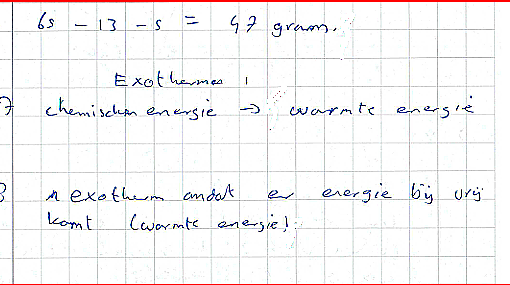 65 - 13 - 5 = 47 gram.
Exothermes
7 chemischen energie → warmte energie
exotherm omdat er energie bij vrij
komt (warmte energie).